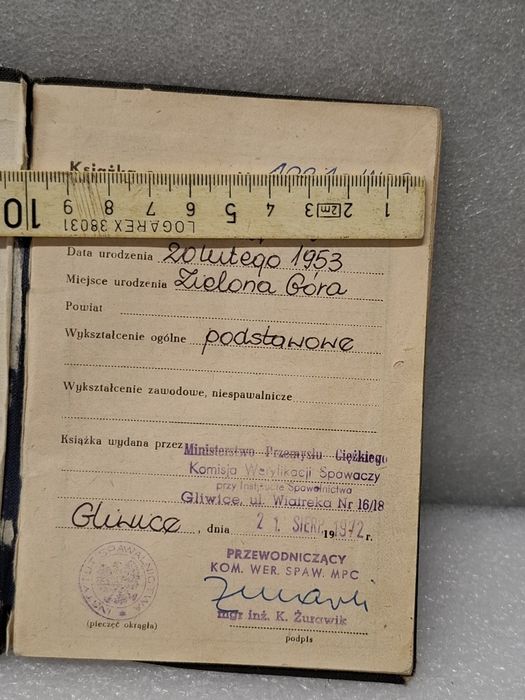 Książka
10 9 8 7 6 5 4 3 2m 2 1
LOGAREX 38031
Data urodzenia 20 lutego 1953
Miejsce urodzenia Zielona Góra
Powiat
Wykształcenie ogólne podstawowe
Wykształcenie zawodowe, niespawalnicze
Książka wydana przez Ministerstwo Przemysłu Ciężkiego
Komisja Weryfikacji Spawaczy
przy Instytucie Spawalnictwa
Gliwice, ul. Wiatreka Nr 16/18
Gliwice, dnia 21 SIERP. 1972 r.
PRZEWODNICZĄCY
KOM. WER. SPAW. MPC
INSTYTUT SPAWALNICTWA
mgr inż. K. Żurawik
(pieczęć okrągła)
podpis